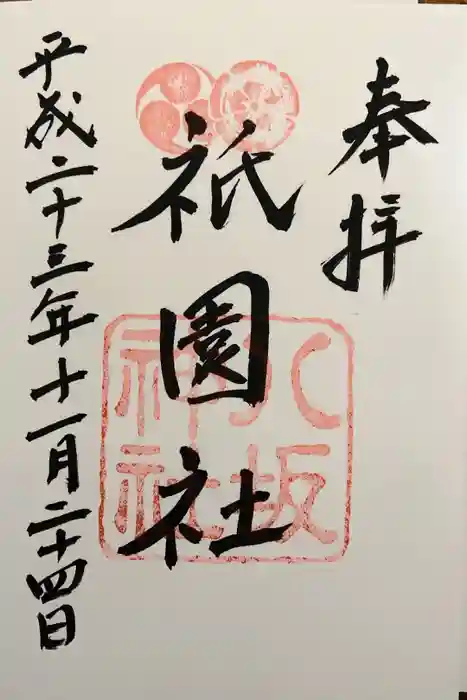 奉拝
祇園社
八坂
神社
平成二十三年十一月二十四日